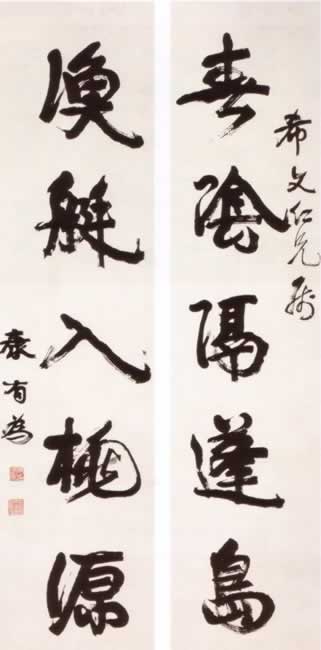 希文仁兄属
春陰隔蓬島
漁艇入桃源
康有為